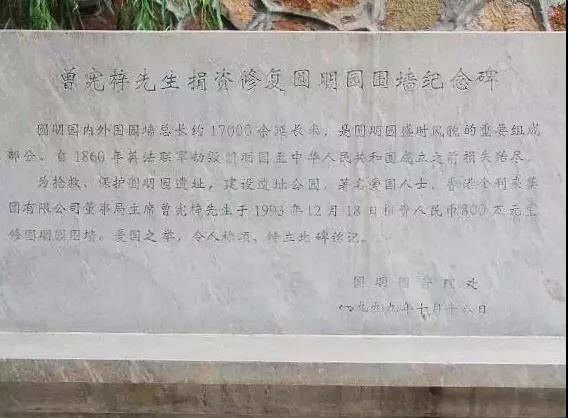 曾宪梓先生捐资修复圆明园围墙纪念碑
圆明园内外围园墙总长约17000余延长米，是圆明园盛时风貌的重要组成
部分、自1860年英法联军劫毁圆明园至中华人民共和国成立之前损失殆尽。
为抢救、保护圆明园遗址，建设遗址公园，著名爱国人士、香港金利来集
团有限公司董事局主席曾宪梓先生于1993年12月18日捐资人民币800万元
修圆明园围墙。爱国之举，令人称颂、特立此碑
圆明园管理处
一九九九年十月十八日